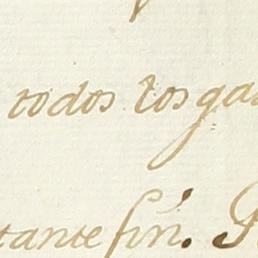 todos los ga
tante fin.